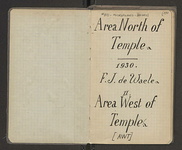 Area North of
Temple.
1930.
F.J. de Waele
Area West of
Temple.